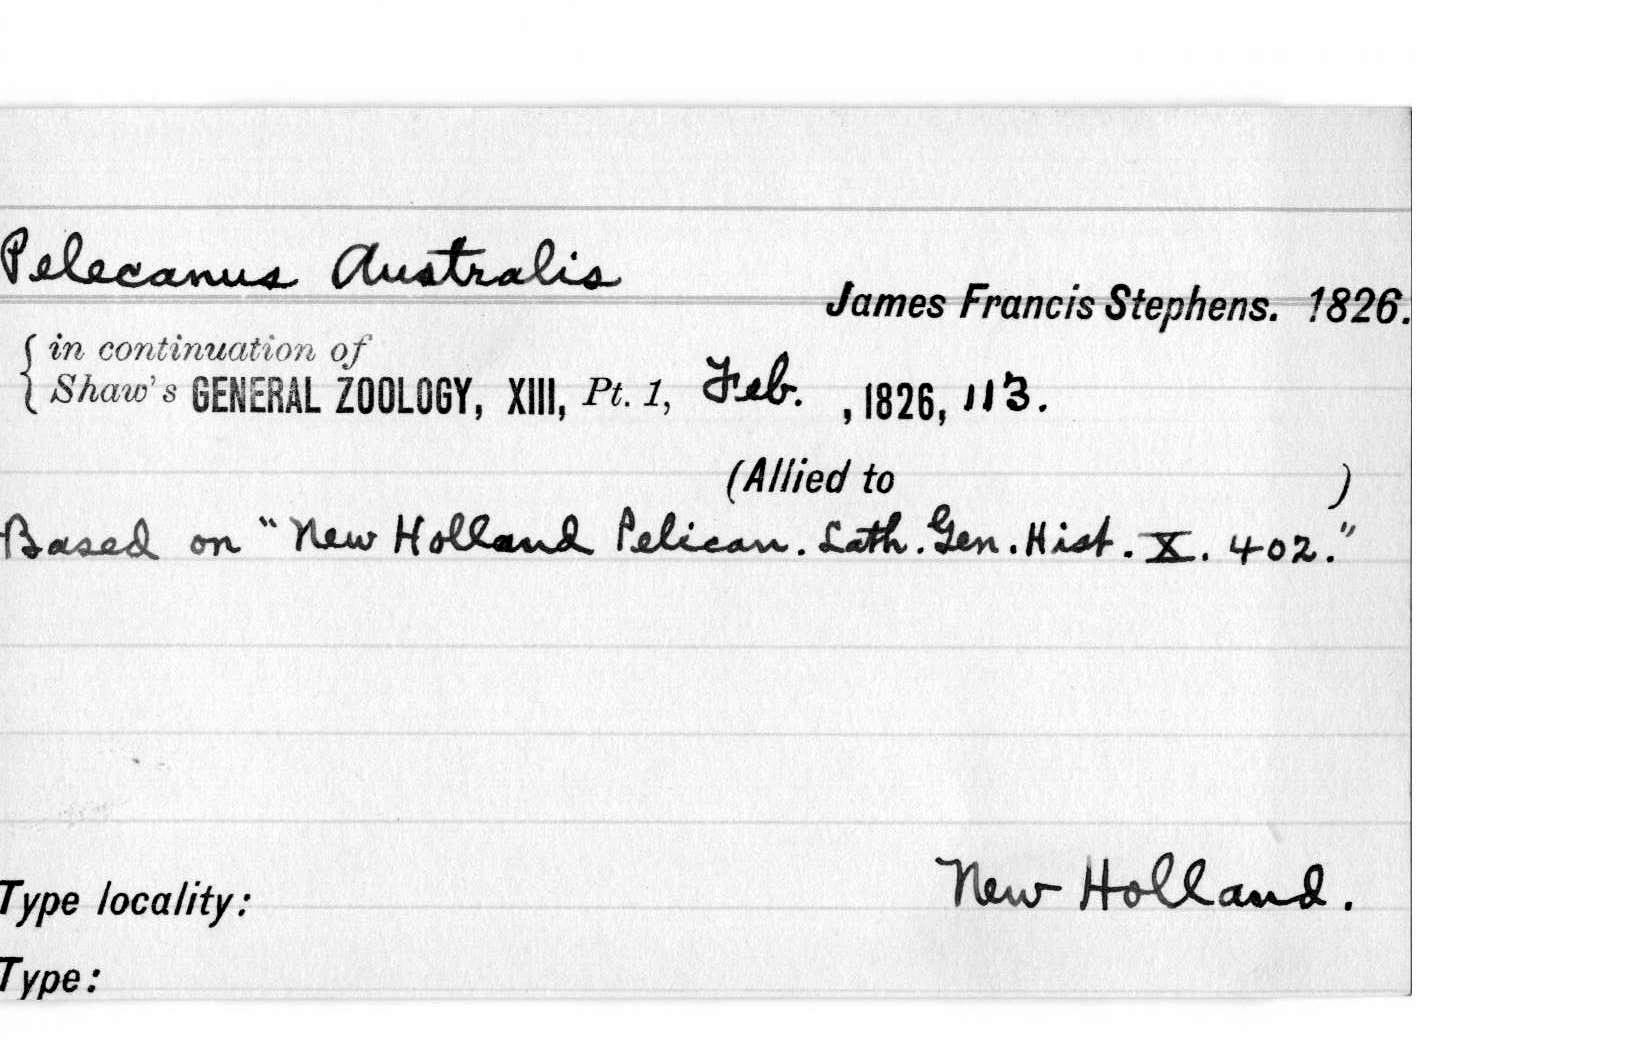 Pelecanus Australis
James Francis Stephens. 1826.
in continuation of
Shaw's GENERAL ZOOLOGY, XIII, Pt. 1, Feb. , 1826, 113.
(Allied to )
Based on "New Holland Pelican. Lath. Gen. Hist. X. 402."
Type locality: New Holland.
Type: